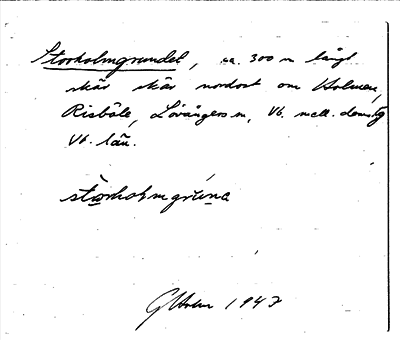 Storholmgrundet, ca. 300 m långt
skär skär nordost om Holmen,
Risböle, Lövångers sn, Vb. mell. domsg
Vb. län.
storholmgruna
GHolm 1947